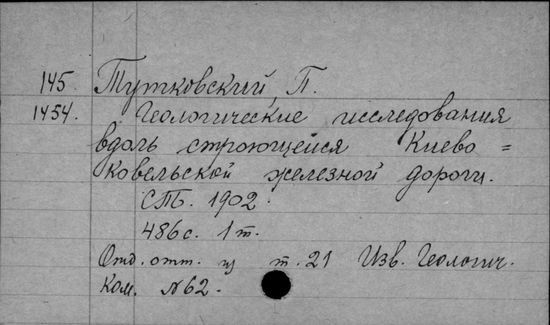 145. Тутковский, П.
1454. Геологические исследования
вдоль строющейся Киево=
Ковельской железной дороги.
СПб. 1902.
486 с. 1 т.
Отд. отт. из т. 21 Изв. Геологич.
Ком. №62.